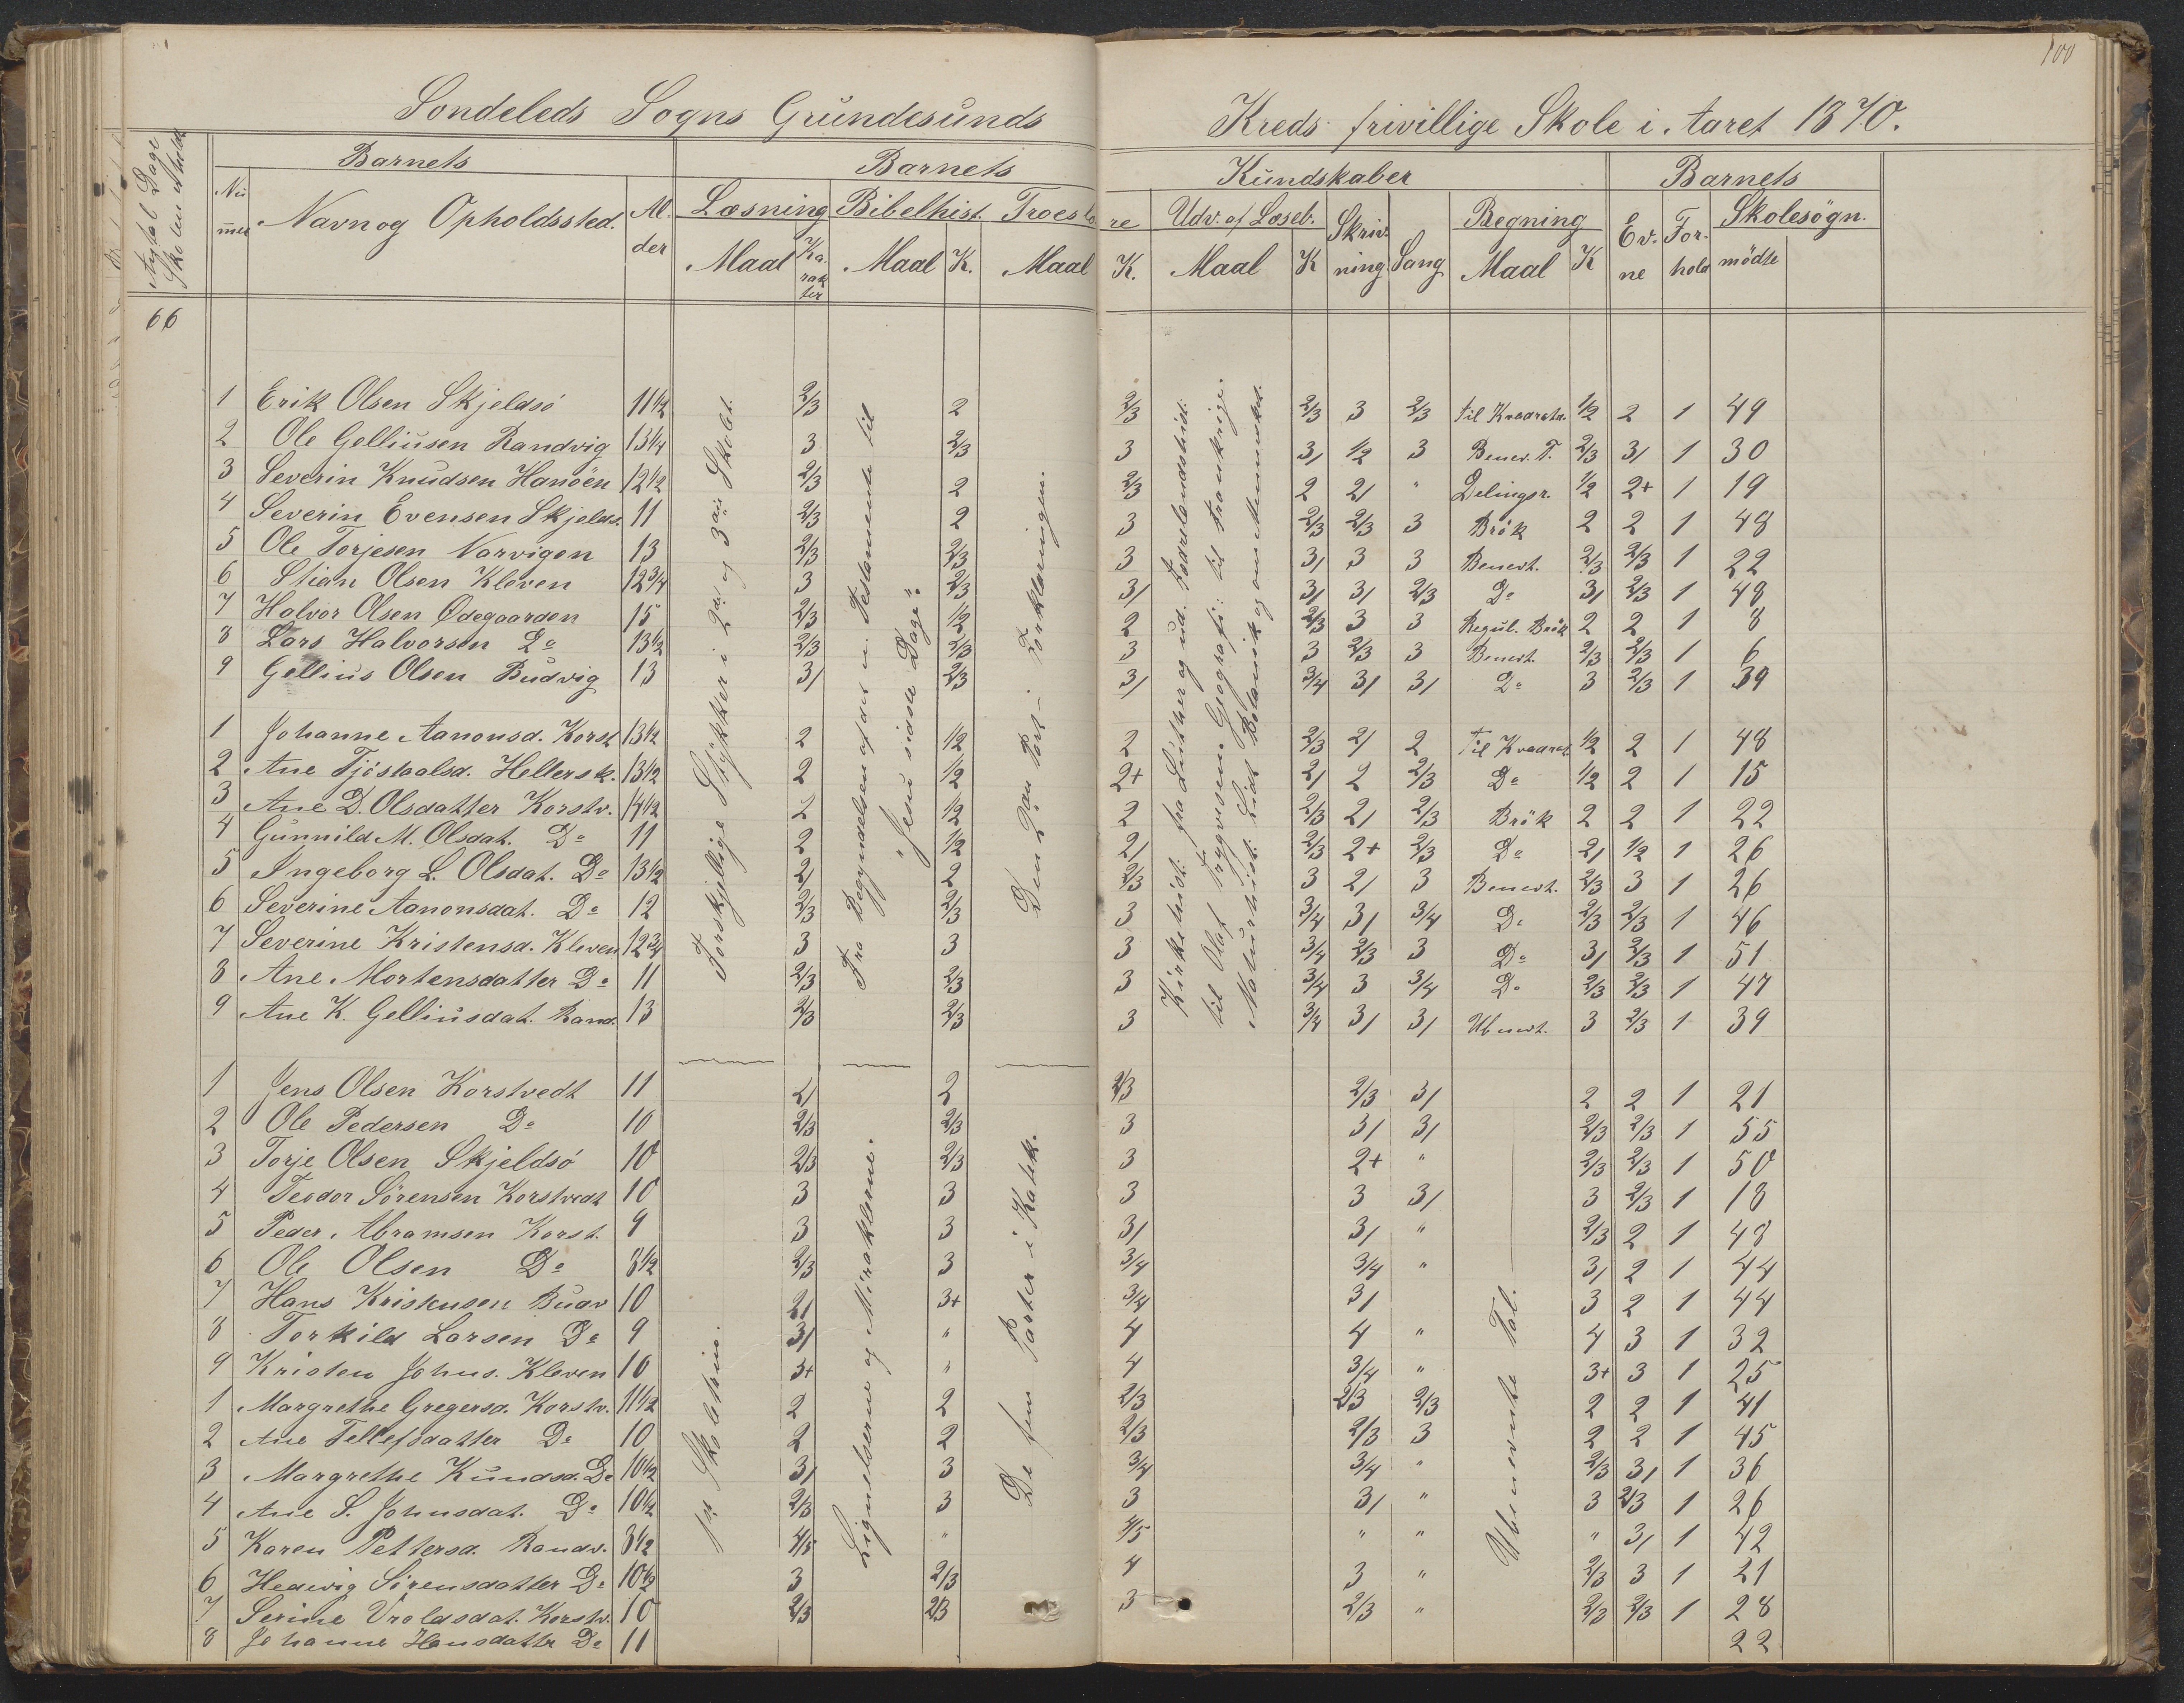 100
Sondeleds Sogns Grundesunds Kreds frivillige Skole i Aaret 1870.
Antal Dage Skolen er holdt
Barnets Barnets Kundskaber Barnets
Nummer Navn og Opholdssted. Alder Læsning Bibelhist. Troeslære Udv. af Læseb. Skrivning Sang Regning Evne Forhold Skolesögn.
Maal Karakter Maal K. Maal K. Maal K Maal K mödte
66
1 Erik Olsen Skjeldsö 11 1/2 2/3 2 2/3 2/3 3 2/3 til Kvadratr. 1/2 2 1 49
2 Ole Gelliusen Randvig 13 1/4 3 2/3 3 3/ 1/2 3 Benev. T. 2/3 3/ 1 30
3 Severin Knudsen Hanöen 12 1/2 2/3 2 2/3 2 2/ " Delingsr. 1/2 2+ 1 19
4 Severin Evensen Skjelds. 11 2/3 2 3 2/3 2/3 3 Brök 2 2 1 48
5 Ole Torjesen Narvigen 13 2/3 2/3 3 3/ 3 3 Benevt. 2/3 2/3 1 22
6 Stian Olsen Kleven 12 3/4 3 2/3 3/ 3/ 3/ 2/3 Do 3/ 2/3 1 48
7 Halvor Olsen Ødegaarden 15 2/3 1/2 2 2/3 3 3 Regul. Brök 2 2 1 8
8 Lars Halvorsen Do 13 1/2 2/3 2/3 3 3 2/3 3 Benevt. 2/3 2/3 1 6
9 Gellius Olsen Budvig 13 3/ 2/3 3/ 3/4 3/ 3/ Do 3 2/3 1 39
1 Johanne Aanonsd. Korst 13 1/2 2 1/2 2 2/3 2/ 2 til Kvadrat 1/2 2 1 48
2 Ane Tjöstaalsd. Hellersk. 13 1/2 2 1/2 2+ 2/ 2 2/3 Do 1/2 2 1 15
3 Ane D. Olsdatter Korstv. 14 1/2 2 1/2 2 2/3 2/ 2/3 Brök 2 2 1 22
4 Gunnild M. Olsdat. Do 11 2 1/2 2/ 2/3 2+ 2/3 Do 2/ 1/2 1 26
5 Ingeborg L. Olsdat. Do 13 1/2 2/ 2 2/3 3 2/ 3 Benevt. 2/3 3 1 26
6 Severine Aanonsdat. Do 12 2/3 2/3 3 3/4 3/ 3/4 Do 2/3 2/3 1 46
7 Severine Kristensd. Kleven 12 3/4 3 3 3 3/4 2/3 3 Do 3/ 2/3 1 51
8 Ane Mortensdatter Do 11 2/3 2/3 3 3/4 3 3/4 Do 2/3 2/3 1 47
9 Ane K. Gelliusdat. Rand. 13 2/3 2/3 3 3/4 3/ 3/ Ubenevt. 3 2/3 1 39
Forskjellige Stykker i 2det og 3die Skolet.
Fra Begyndelsen af det n. Testamente til
"Jesu sidste Dage".
Den 2den Part i Forklaringen.
Kirkehist. fra Luther og ud. Fædrelandshist.
til Olaf Trygvesen. Geografi: til Frankrige.
Naturhist. Lidt Botanik og om Mennesket.
1 Jens Olsen Korstvedt 11 2/ 2 2/3 2/3 3/ 2 2 1 21
2 Ole Pedersen Do 10 2/3 2/3 3 3/ 3/ 2/3 2/3 1 55
3 Torje Olsen Skjeldsö 10 2/3 2/3 3 2+ " 2/3 2/3 1 50
4 Teodor Sörensen Korstvedt 10 3 3 3 3 3/ 3 2/3 1 18
5 Peder Abramsen Korst. 9 3 3 3/ 3/ " 2/3 2 1 48
6 Ole Olsen Do 8 1/2 2/3 3 3/4 3/4 " 3/ 2 1 44
7 Hans Kristensen Budv 10 2/ 3+ 3/4 3/ 3 2 1 44
8 Torkild Larsen Do 9 3/ " 4 4 " 4 3 1 32
9 Kristen Johns. Kleven 10 3+ " 4 3/4 " 3+ 3 1 25
1 Margrethe Gregersd. Korstv. 11 1/2 2 2 2/3 2/3 2/3 2 2 1 41
2 Ane Tellefsdatter Do 10 2 2 2/3 2/3 3 2 2 1 45
3 Margrethe Knudsd. Do 10 1/2 3/ 3 3/4 3/4 " 2/3 3/ 1 36
4 Ane S. Johnsdat. Do 10 1/2 2/3 3 3 3/ " 3 2/3 1 26
5 Karen Pettersd. Randv. 8 1/2 4/5 " 4/5 " " " 3/ 1 42
6 Hedevig Sörensdatter Do 10 1/2 3 2/3 4 3 " 2/3 3 1 21
7 Serine Vroldsdat. Korstv. 10 2/3 2/3 3 2/3 " 2/3 2/3 1 28
8 Johanne Hansdatter Do 11 22
Skoletrin.
Lignelserne og Miraklerne.
De fem Parter i Katek.
Ubenevnte Tal.